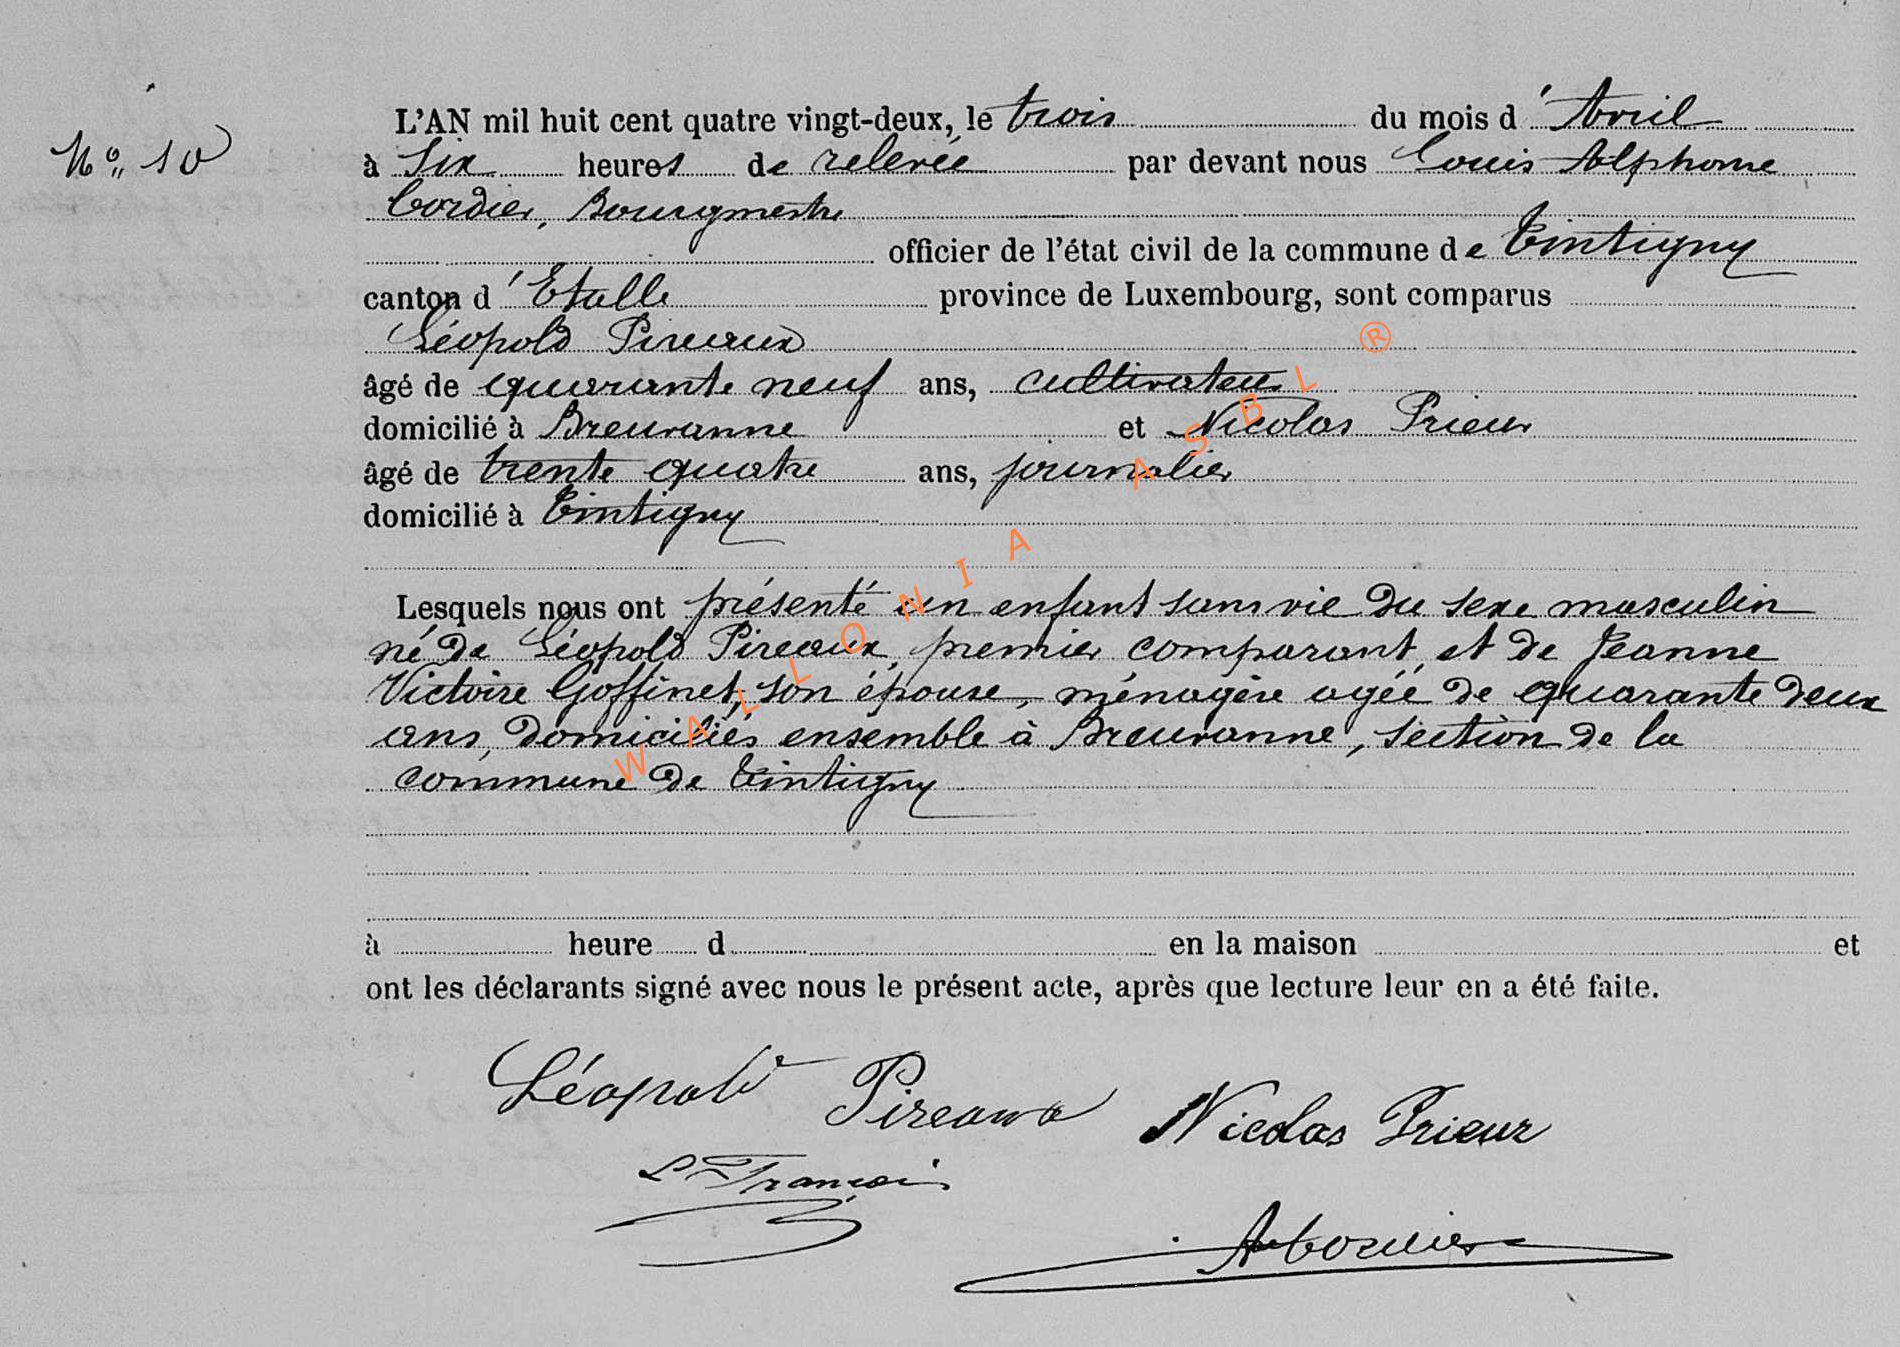 N° 10
L'AN mil huit cent quatre vingt-deux, le trois du mois d'Avril
à six heures de relevée par devant nous Louis Alphonse
Cordier, Bourgmestre
officier de l'état civil de la commune de Tintigny
canton d'Etalle province de Luxembourg, sont comparus
Léopold Pireaux
âgé de quarante neuf ans, cultivateur
domicilié à Breuvanne et Nicolas Prieur
âgé de trente quatre ans, journalier
domicilié à Tintigny
Lesquels nous ont présenté un enfant sans vie du sexe masculin
né de Léopold Pireaux, premier comparant, et de Jeanne
Victoire Goffinet, son épouse, ménagère agée de quarante deux
ans, domiciliés ensemble à Breuvanne, section de la
commune de Tintigny
à heure d en la maison et
ont les déclarants signé avec nous le présent acte, après que lecture leur en a été faite.
Léopold Pireaux Nicolas Prieur
L François
A Cordier
WALLONIA ASBL ®